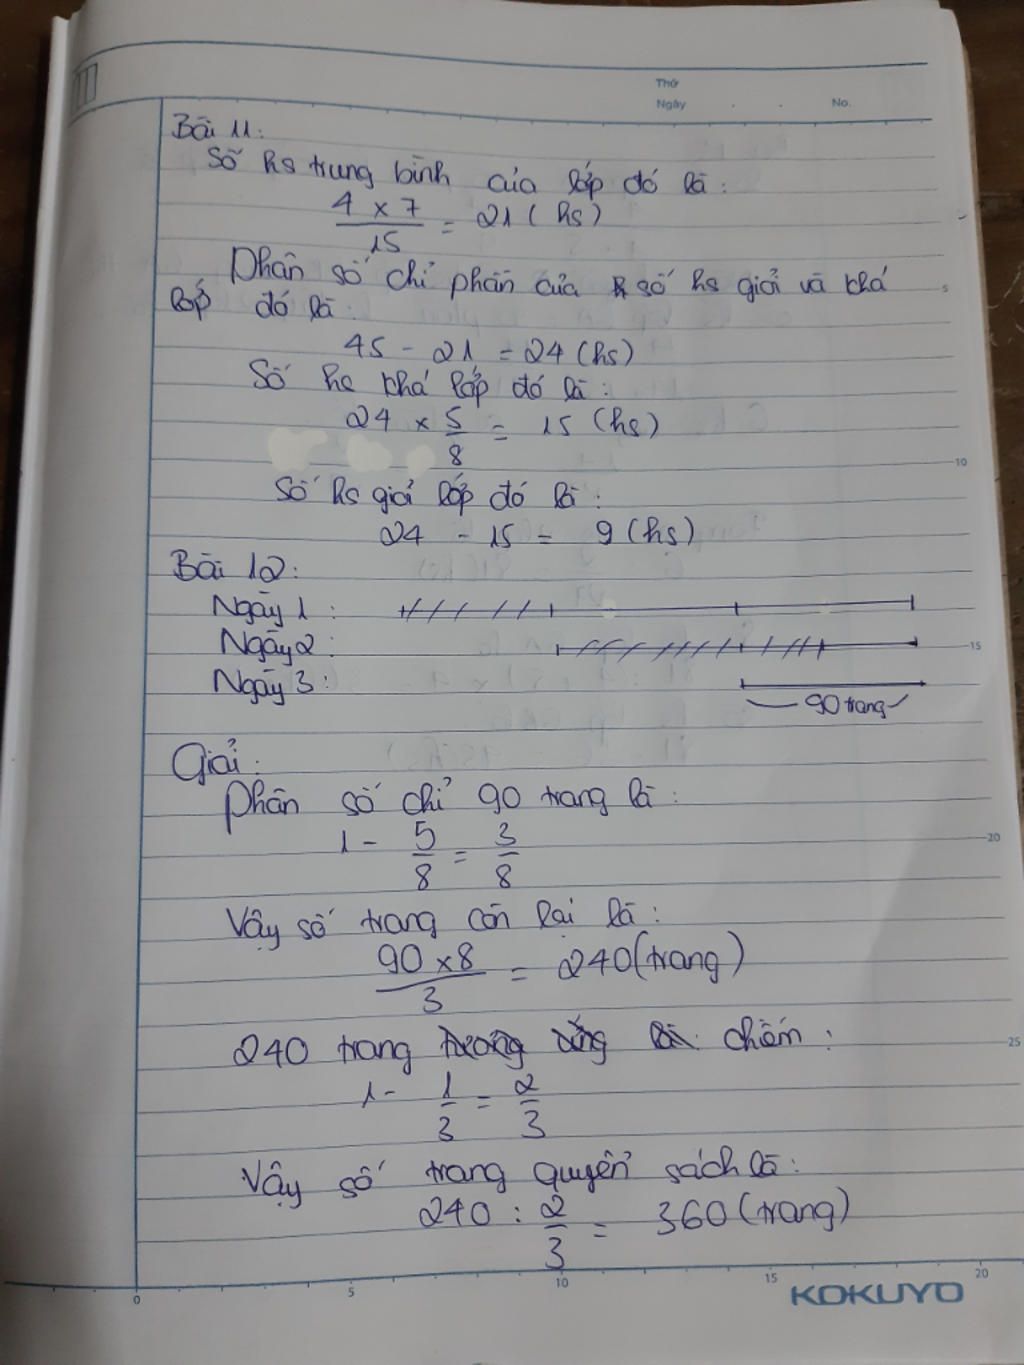 Thứ
Ngày . . No.
Bài 11:
Số hs trung bình của lớp đó là:
4 x 7 / 15 = 21 (hs)
Phân số chỉ phần của số hs giỏi và khá
lớp đó là:
45 - 21 = 24 (hs)
Số hs khá lớp đó là:
24 x 5/8 = 15 (hs)
Số hs giỏi lớp đó là:
24 - 15 = 9 (hs)
Bài 12:
Ngày 1:
Ngày 2:
Ngày 3:
90 trang
Giải:
Phân số chỉ 90 trang là:
1 - 5/8 = 3/8
Vậy số trang còn lại là:
90 x 8 / 3 = 240 (trang)
240 trang chiếm:
1 - 1/3 = 2/3
Vậy số trang quyển sách là:
240 : 2/3 = 360 (trang)
5
10
15
20
25
0 5 10 15 20
KOKUYO